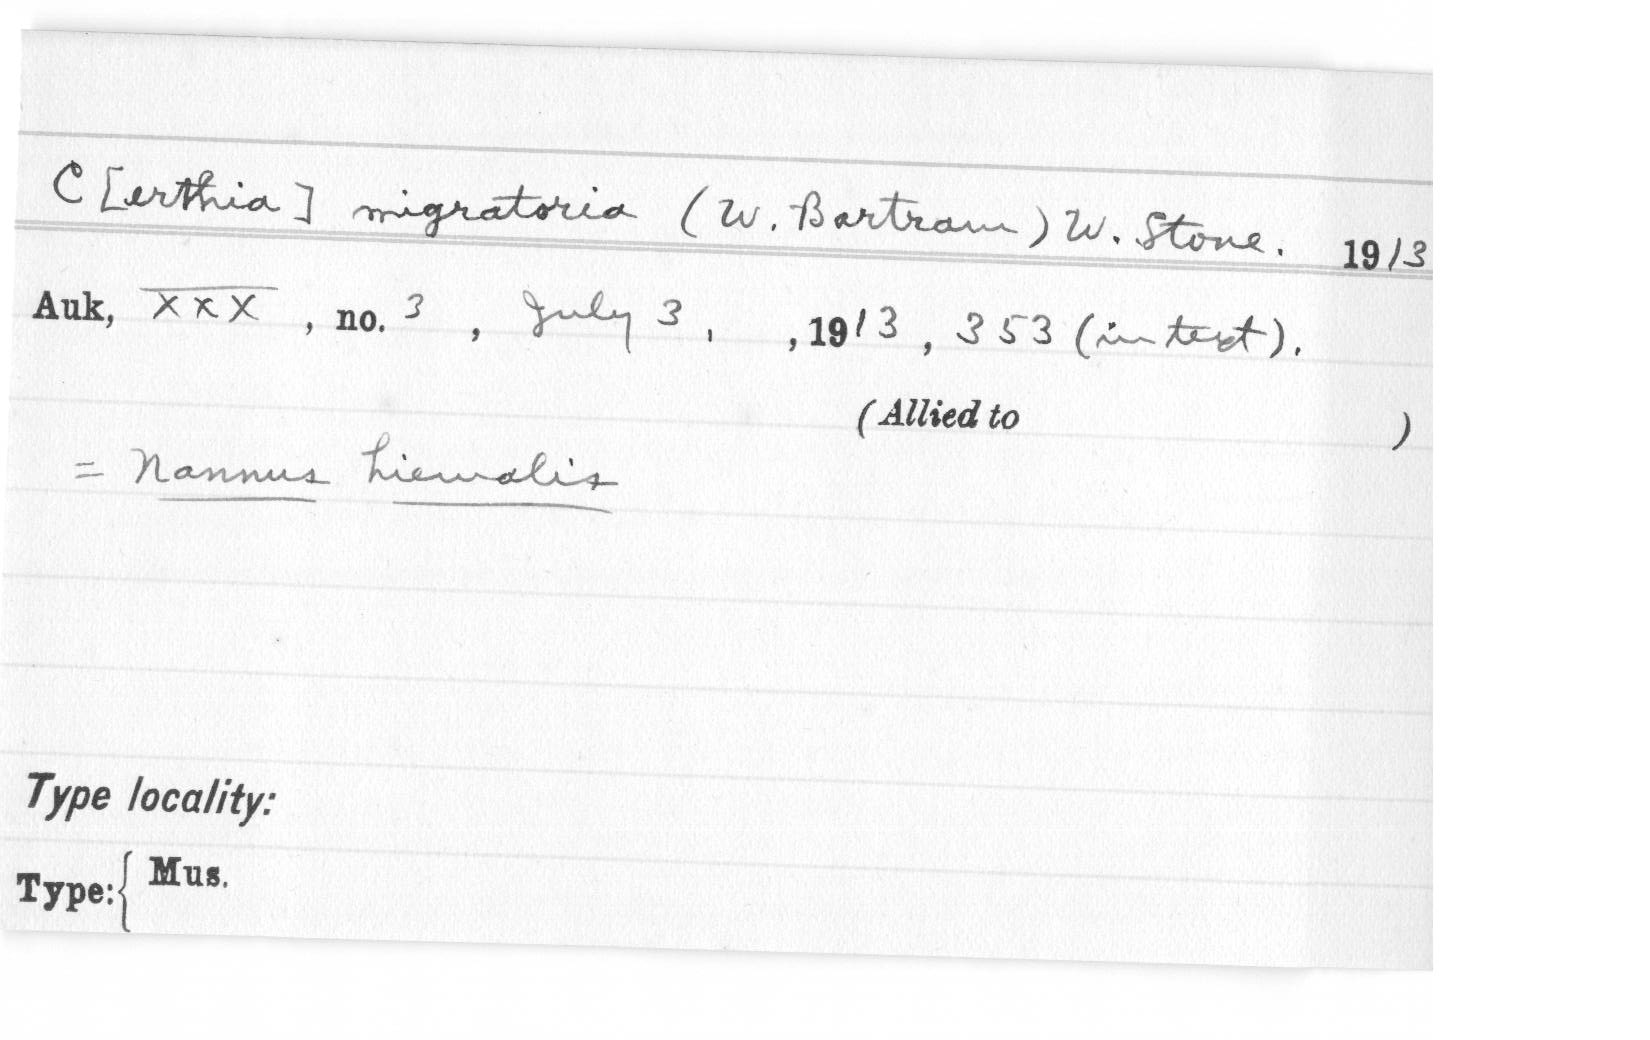 C[erthia] migratoria (W. Bartram) W. Stone. 1913
Auk, XXX, no. 3, July 3, , 1913, 353 (in text).
(Allied to )
= Nannus hiemalis
Type locality:
Type: { Mus.